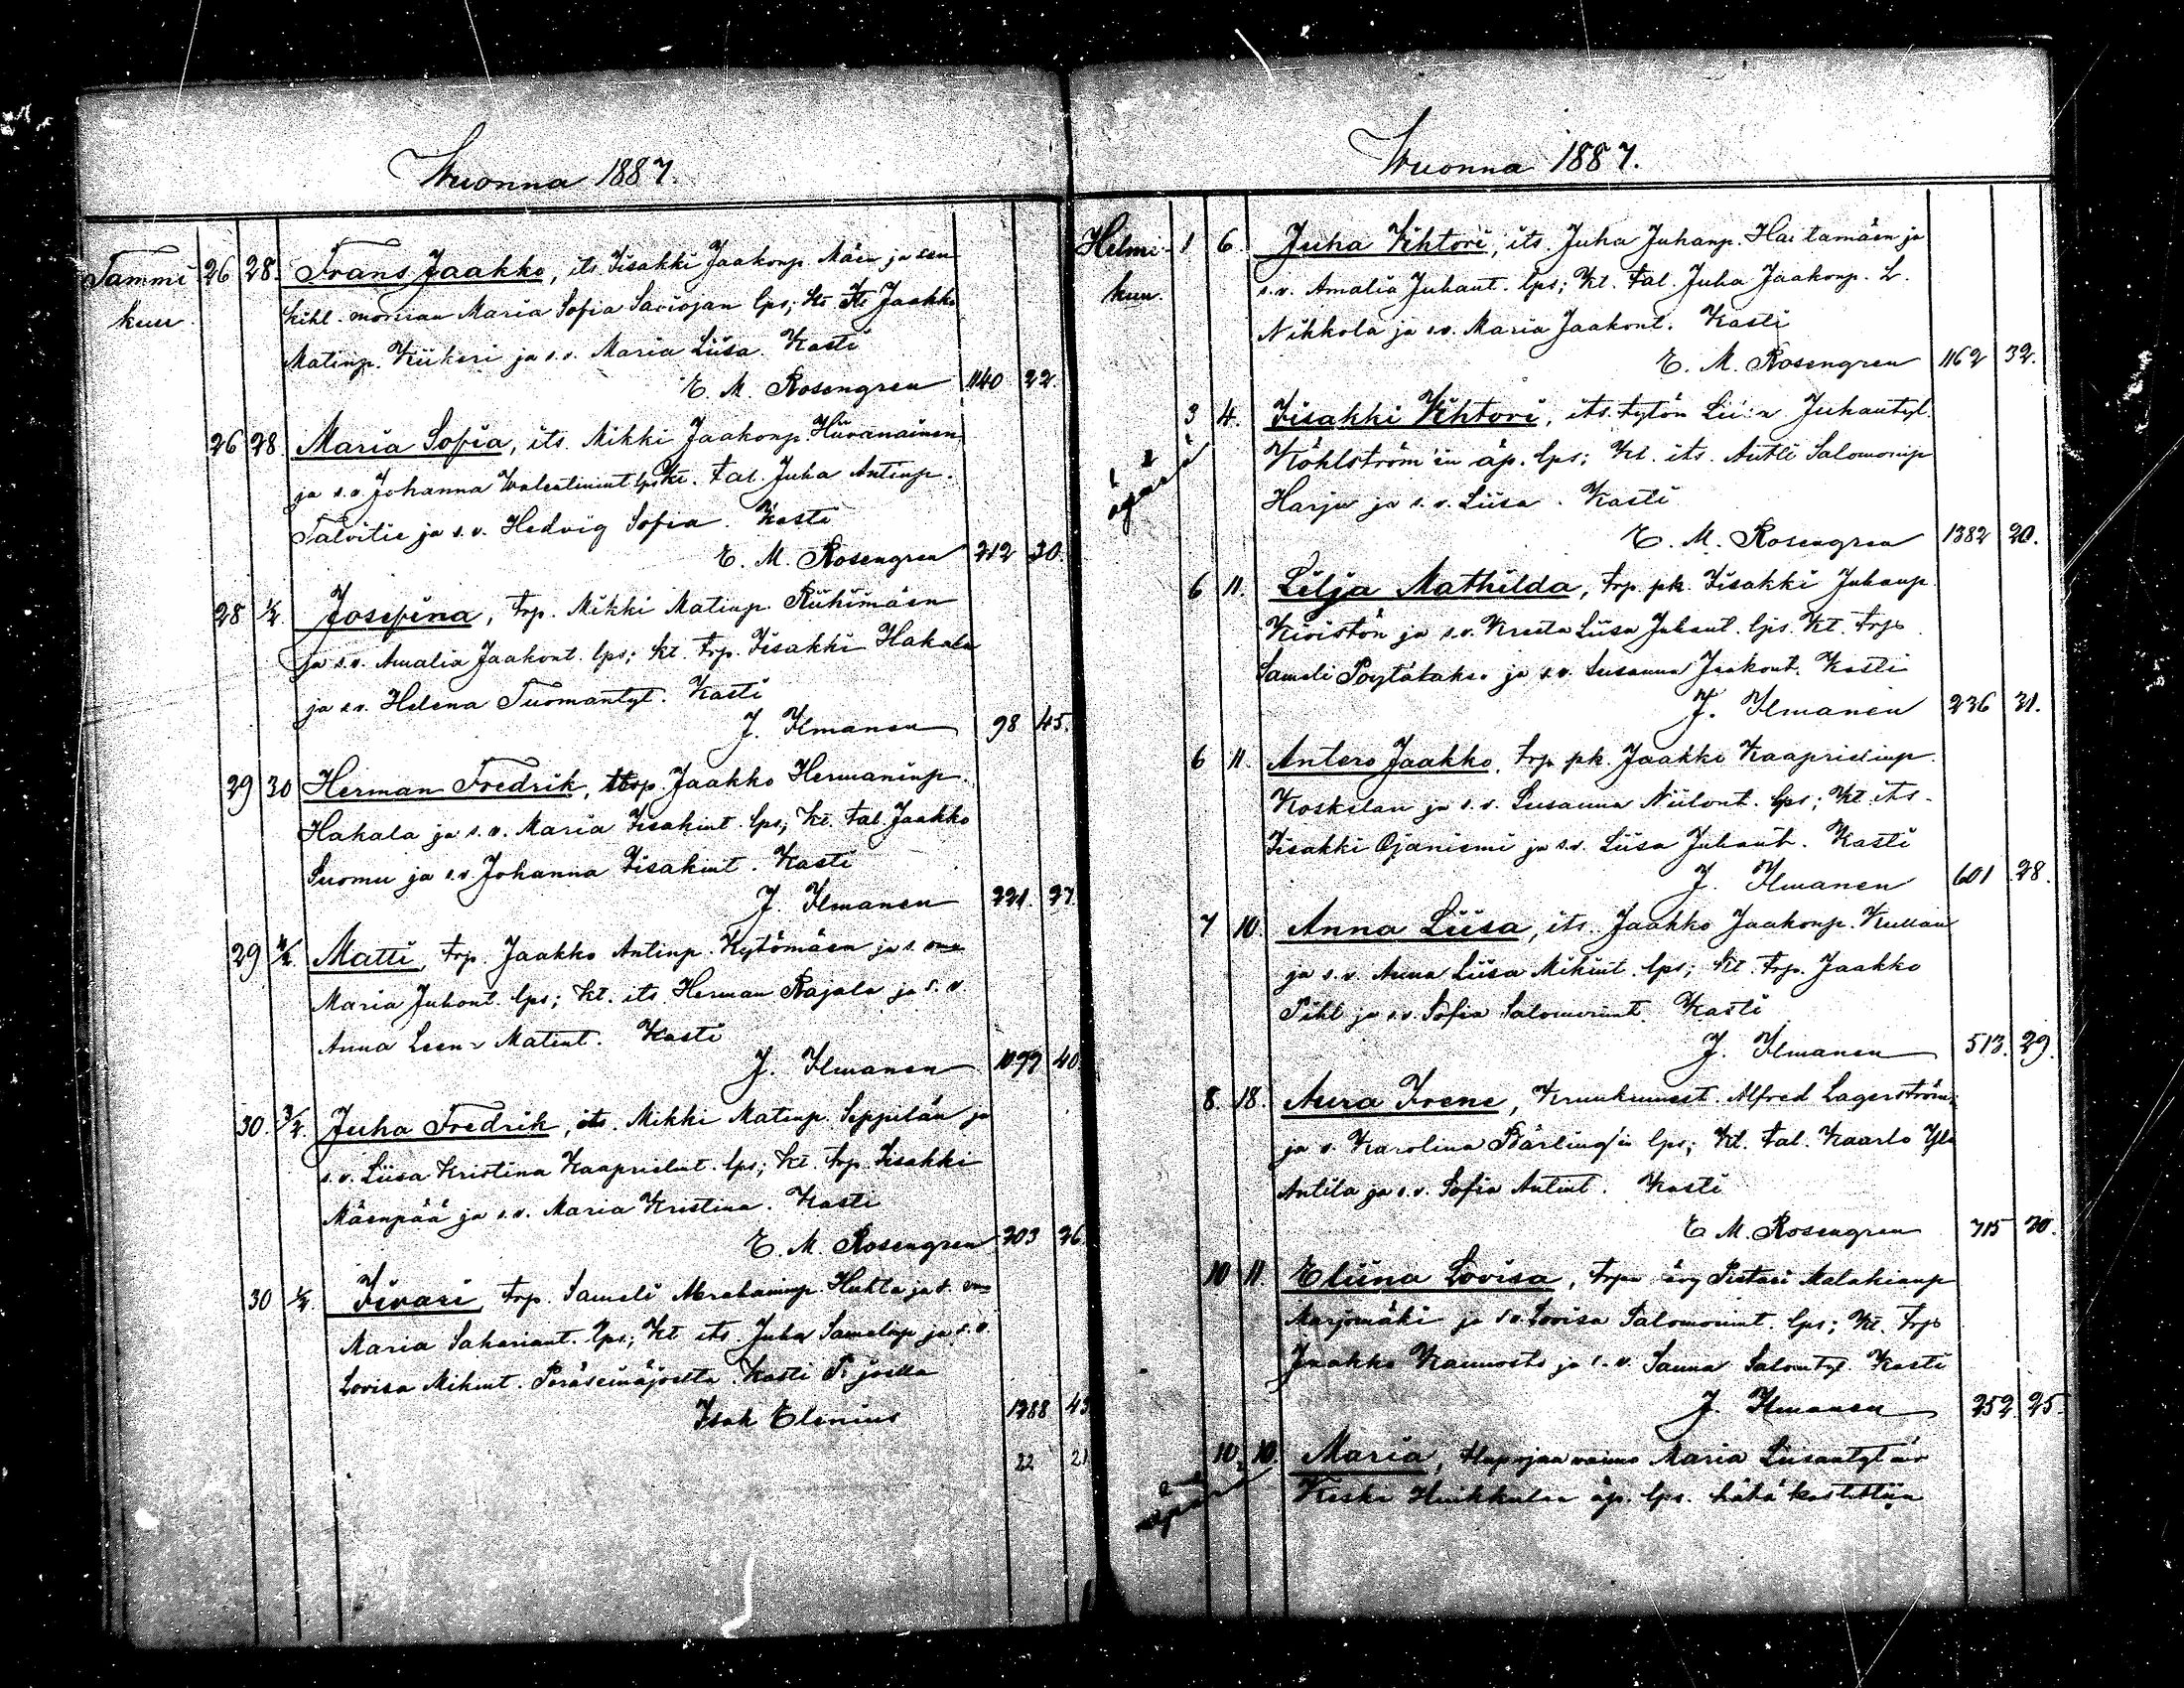 Wuonna 1887.
Tammi 26 28. Frans Jaakko, its Iisakki Jaakonp. Mäen ja sen
kuu. kihl. morsian Maria Sofia Saviojan lps; Kt Jaakko
Matinp. Kiikeri ja s.v. Maria Liisa. Kasti
E. M. Rosengren 1140 22.
26 28. Maria Sofia, its. Mikki Jaakonp. Hiivanainen
ja s.v. Johanna Walentinint. lps Kt. tal. Juha Antinp.
Talvitie ja s.v. Hedvig Sofia. Kasti
E. M. Rosengren 712 30.
28 1/2. Josefina, trp. Mikki Matinp. Riihimäen
ja s.v. Amalia Jaakont. lps; kt. trp. Iisakki Hakala
ja s.v. Helena Tuomantyt. Kasti
J. Ilmanen 98 45.
29 30 Herman Fredrik, trp. Jaakko Hermaninp.
Hakala ja s.v. Maria Iisakint. lps; Kt. tal. Jaakko
Suomu ja s.v. Johanna Iisakint. Kasti
J. Ilmanen 221. 27.
29 Matti, trp. Jaakko Antinp. Kytömäen ja s.
Maria Juhont. lps; kt. its Herman Rajala ja s.v.
Anna Leena Matint. Kasti
J. Ilmanen 1099 40.
30. 3/2. Juha Fredrik, its. Mikki Matinp. Seppilän ja
s.v. Liisa Kristina Kaaprielint. lps; kt. trp. Iisakki
Mäenpää ja s.v. Maria Kristina. Kasti
E. M. Rosengren 203 26.
30 1/2. Iivari, trp. Sameli Abrahaminp. Huhta ja s.
Maria Sakariant. lps; Kt its. Juha Samelinp ja s.v.
Lovisa Mikint. Peräseinäjoelta. Kasti P. joella
Isak Elenius 1288 43
22 21
Wuonna 1887.
Helmi- 1 6. Juha Vihtori, its. Juha Juhanp. Haitamäen ja
kuu. s.v. Amalia Juhant. lps; Kt. tal. Juha Jaakonp. L.
Nikkola ja s.v. Maria Jaakont. Kasti
E. M. Rosengren 1162 32.
3 4. Iisakki Vihtori, its. tytön Liisa Juhantyt.
Köhlström'in äp. lps; Kt. its. Antti Salomonip
Harju ja s.v. Liisa. Kasti
E. M. Rosengren 1382 20.
6 11. Lilja Mathilda, trp. pk. Iisakki Juhanp.
Kiviston ja s.v. Kreeta Liisa Juhant. lps. Kt. trp
Sameli ja s.v. Susanna Jaakont. Kasti
J. Ilmanen 236 31.
6 11. Antero Jaakko, trp pk. Jaakko Kaaprielinp.
Koskelan ja s.v. Susanna Niilont. lps; Kt its.
Iisakki Ojaniemi ja s.v. Liisa Juhant. Kasti
J. Ilmanen 601 28.
7 10. Anna Liisa, its. Jaakko Jaakonp. Kullan
ja s.v. Anna Liisa Mikint. lps; Kt. trp. Jaakko
Pihl ja s.v. Sofia Salomonint. Kasti
J. Ilmanen 513. 29.
8. 18. Aura Irene, Kruukumest. Alfred Lagerström
ja v. Karolina Bärling'in lps; Kt. tal. Kaarlo Yli
Antila ja s.v. Sofia Antint. Kasti
E M. Rosengren 715 20.
10 11. Eliina Lovisa, trp. Pietari Malakianp
Marjomäki ja s.v. Lovisa Salomonint. lps; Kt. trp
Jaakko ja s.v. Sanna Salomtyt. Kasti
J. Ilmanen 252 25.
10. 10. Maria, Maria Liisantyt
Keski äp. lps. hätä kastettiin